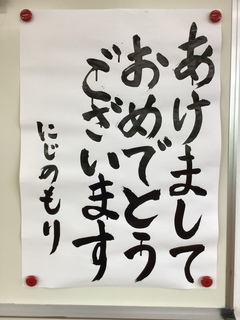 あけまして
おめでとう
ございます
にじのもり